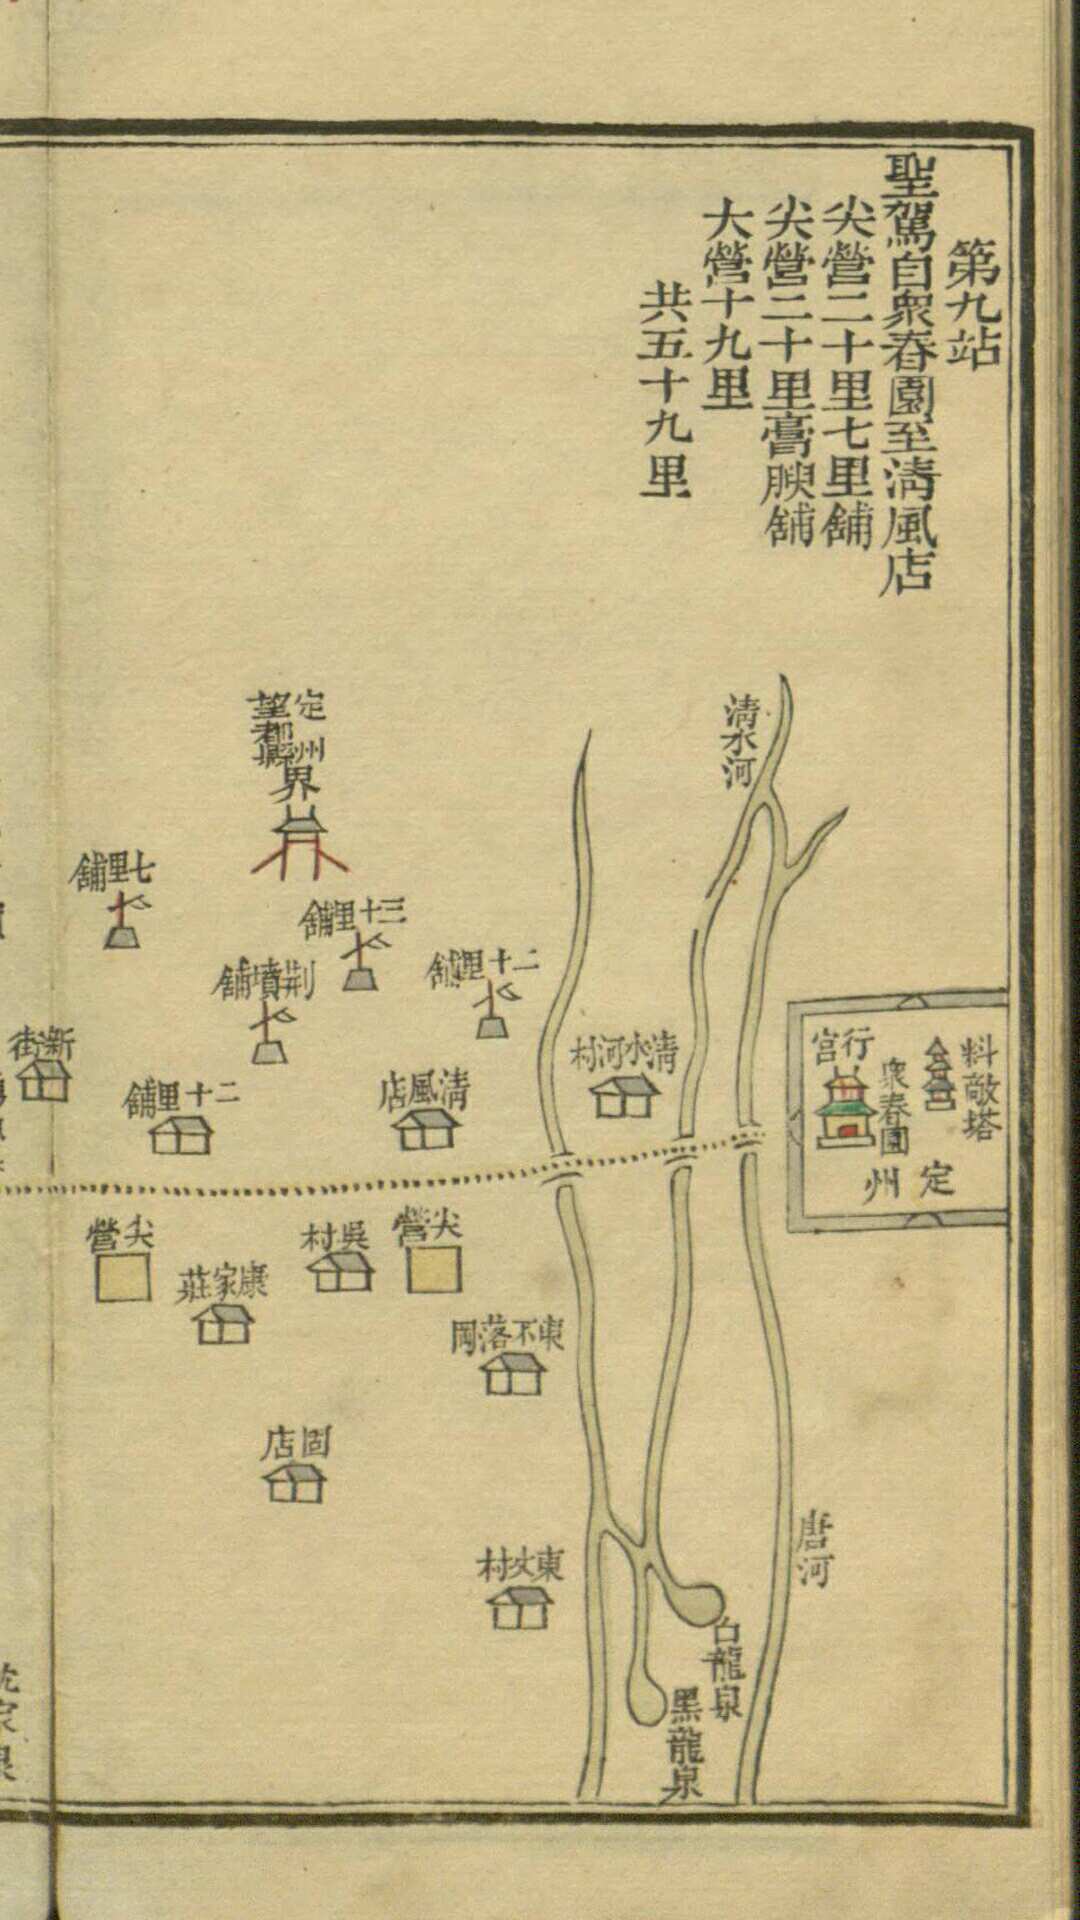 第九站
聖駕自衆春園至淸風店
尖營二十里七里舖
尖營二十里膏腴舖
大營十九里
共五十九里
料敵塔
衆春園
行宮
定州
清水河
唐河
白龍泉
黑龍泉
淸水河村
二十里舖
東不落岡
淸風店
尖營
三十里舖
吳村
定州
望都縣
界
荆墳舖
固店
康家莊
二十里舖
七里舖
尖營
新街